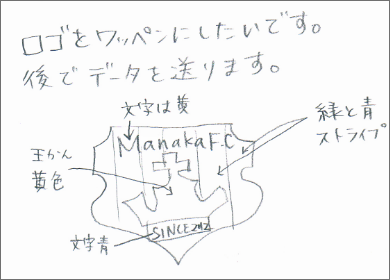 ロゴをワッペンにしたいです。
後でデータを送ります。
文字は黄
緑と青
ストライプ
Manaka F.C
王かん
黄色
文字青
SINCE 2012